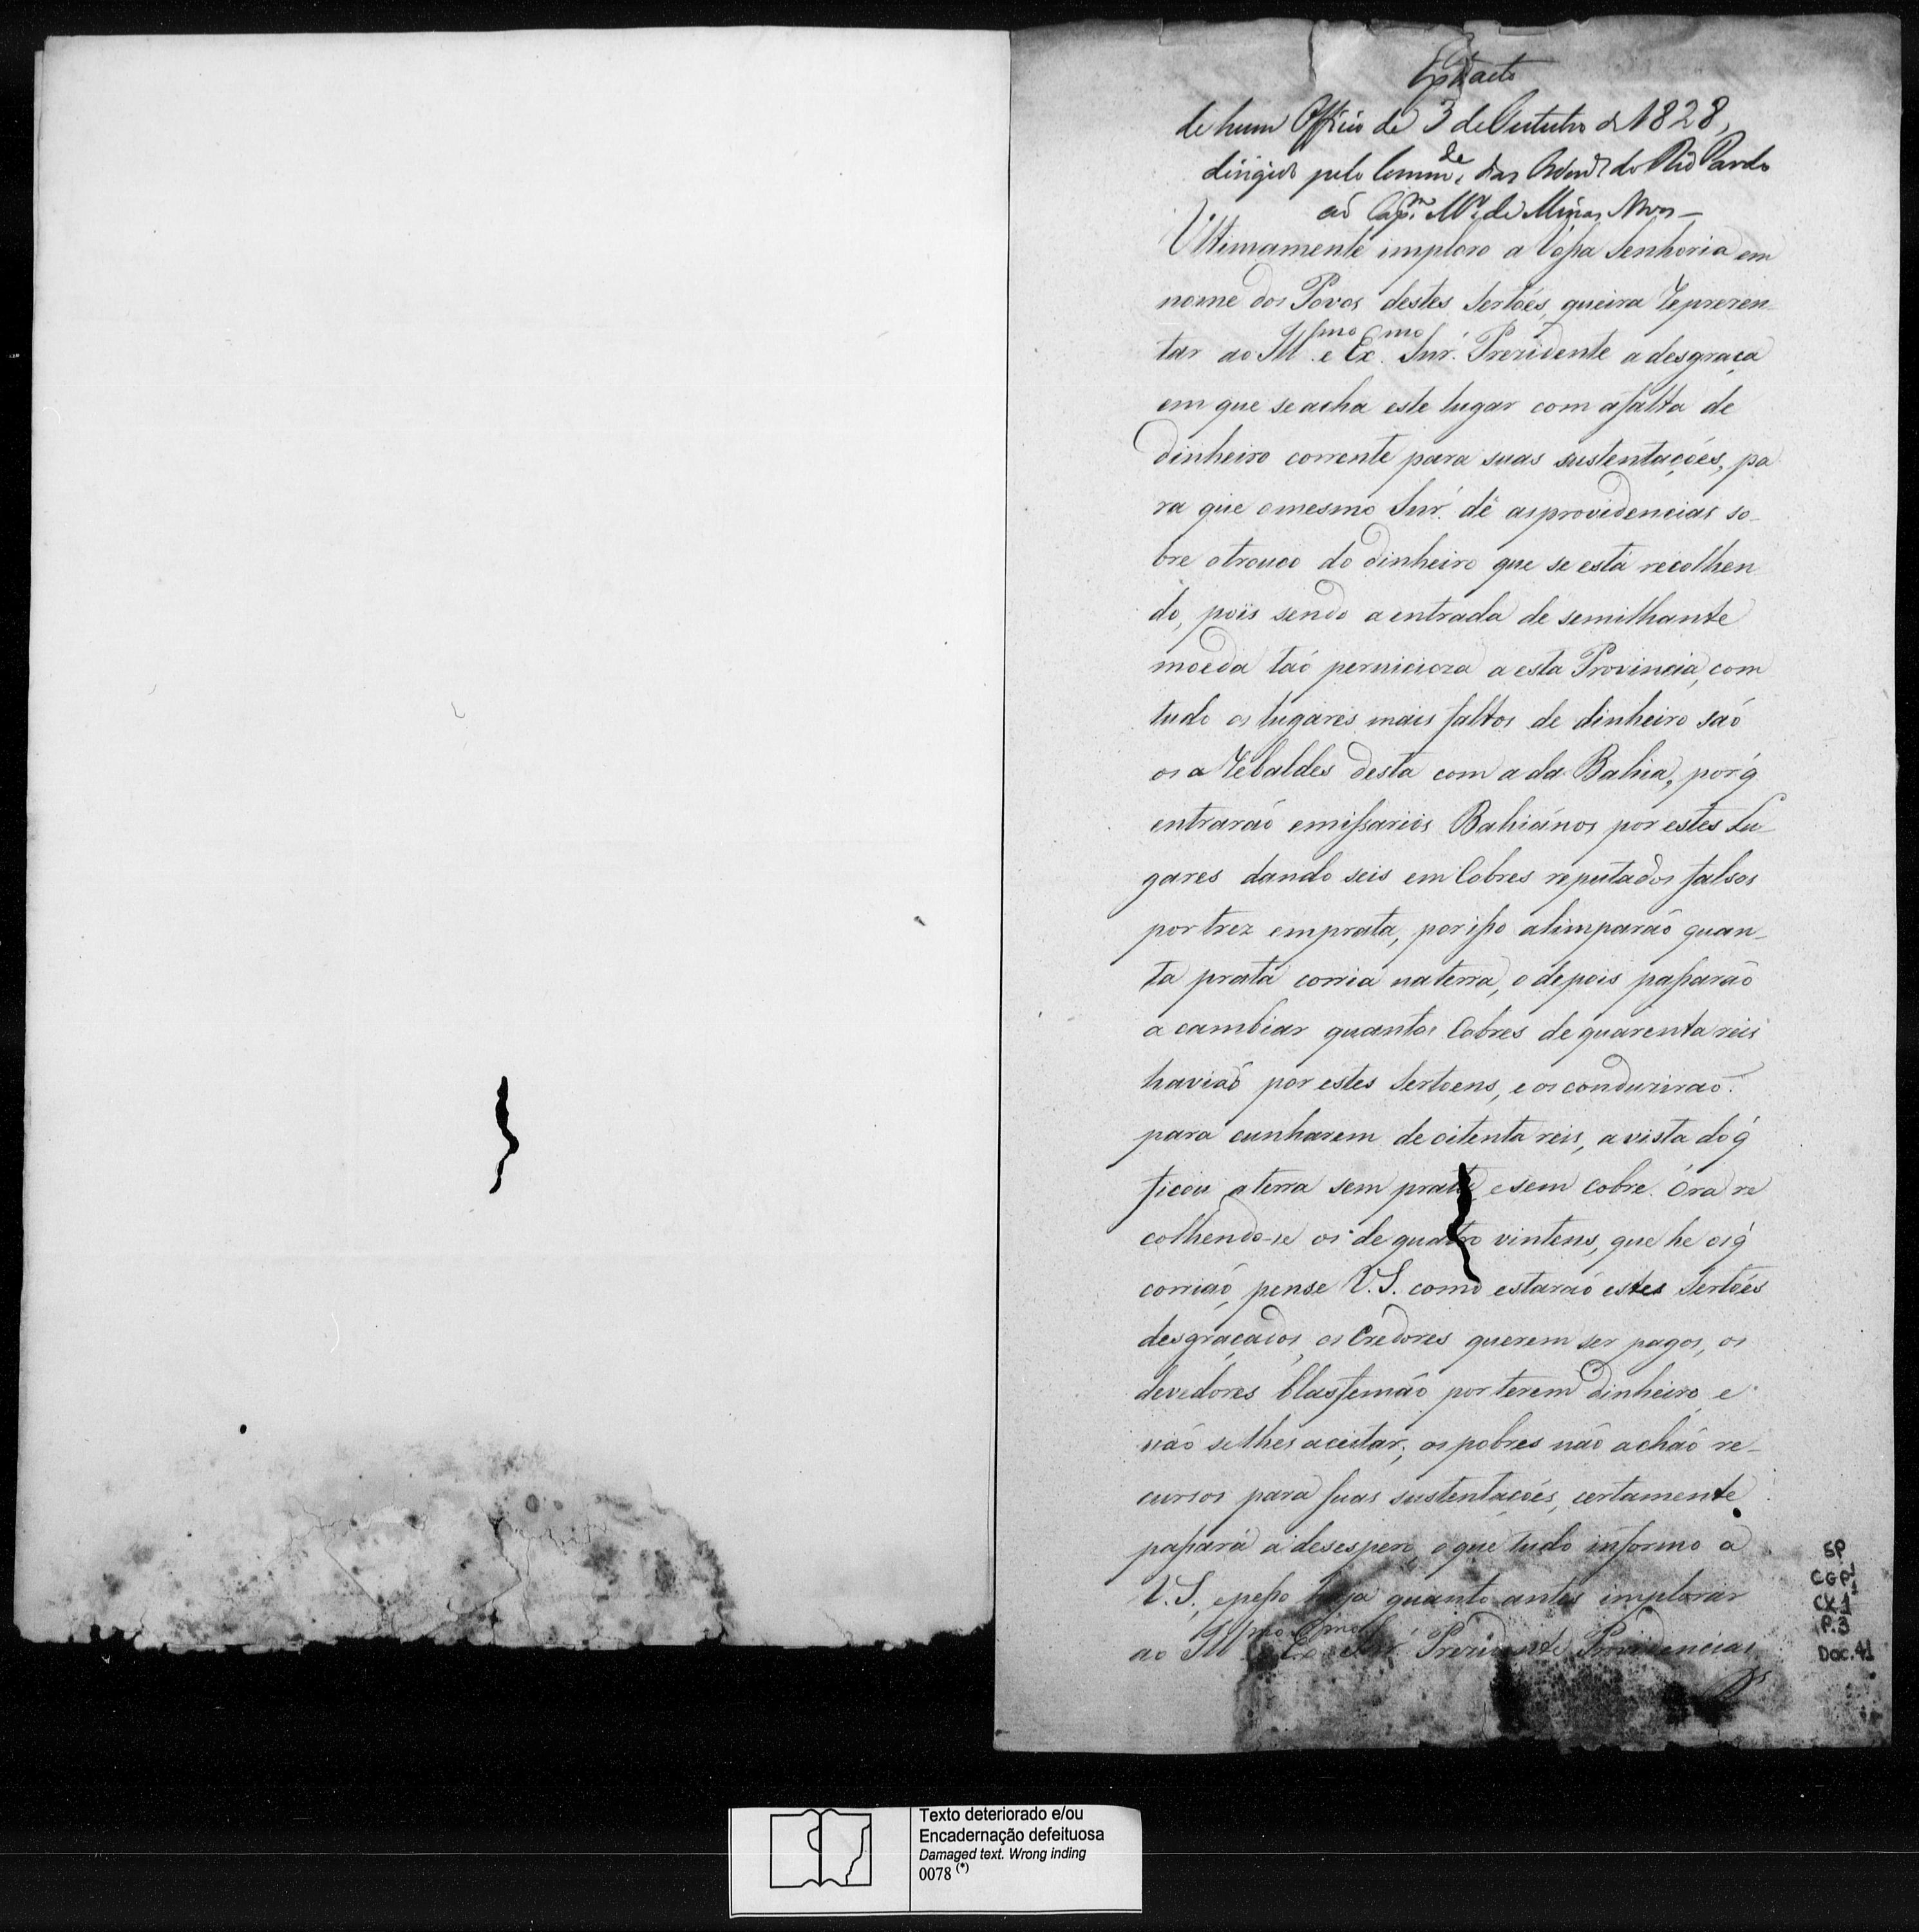 Extracto
de hum Officio de 3 de Outubro de 1828,
dirigido pelo Comm.de das Orden.s do Rio Pardo
ao Cap.m M.r de Minas Novas —
Ultimamente imploro a Vossa Senhoria em
nome dos Povos destes Sertoẽs, queira reprezen-
tar ao Ill.mo e Ex.mo Snr. Prezidente a desgraça
em que se acha este lugar com a falta de
dinheiro corrente para suas sustentaçoẽs, pa-
ra que o mesmo Snr. dê as providencias so-
bre o trouco do dinheiro que se está recolhen-
do, pois sendo a entrada de semilhante
moeda taõ pernicioza a esta Provincia, com
tudo os lugares mais faltos de dinheiro saõ
os arrebaldes desta com a da Bahia, por q̃
entraraõ emissarios Bahianos por estes Lu-
gares dando seis em Cobres reputados falsos
por trez em prata, por isso alimparaõ quan-
ta prata corria na terra, e depois passaraõ
a cambiar quantos Cobres de quarenta reis
haviaõ por estes Sertoens, e os conduziraõ
para cunharem de oitenta reis, a vista do q̃
ficou a terra sem prata, e sem cobre. Ora re
colhendo-se os de quatro vintens, que he os q̃
corriaõ, pense V. S. como estaraõ estes Sertoẽs
desgraçados, os Credores querem ser pagos, os
devedores blasfemaõ por terem dinheiro, e
naõ se lhes aceitar; os pobres naõ achaõ re-
cursos para suas sustentaçoẽs, certamente
passará a desespero, o que tudo informo a
V. S., e pesso haja quanto antes implorar
ao Ill.mo Ex.mo Snr. Prezidente Providencias
SP
CGP1
CX.1
P.3
Doc.41
Texto deteriorado e/ou
Encadernação defeituosa
Damaged text. Wrong inding
0078 (*)